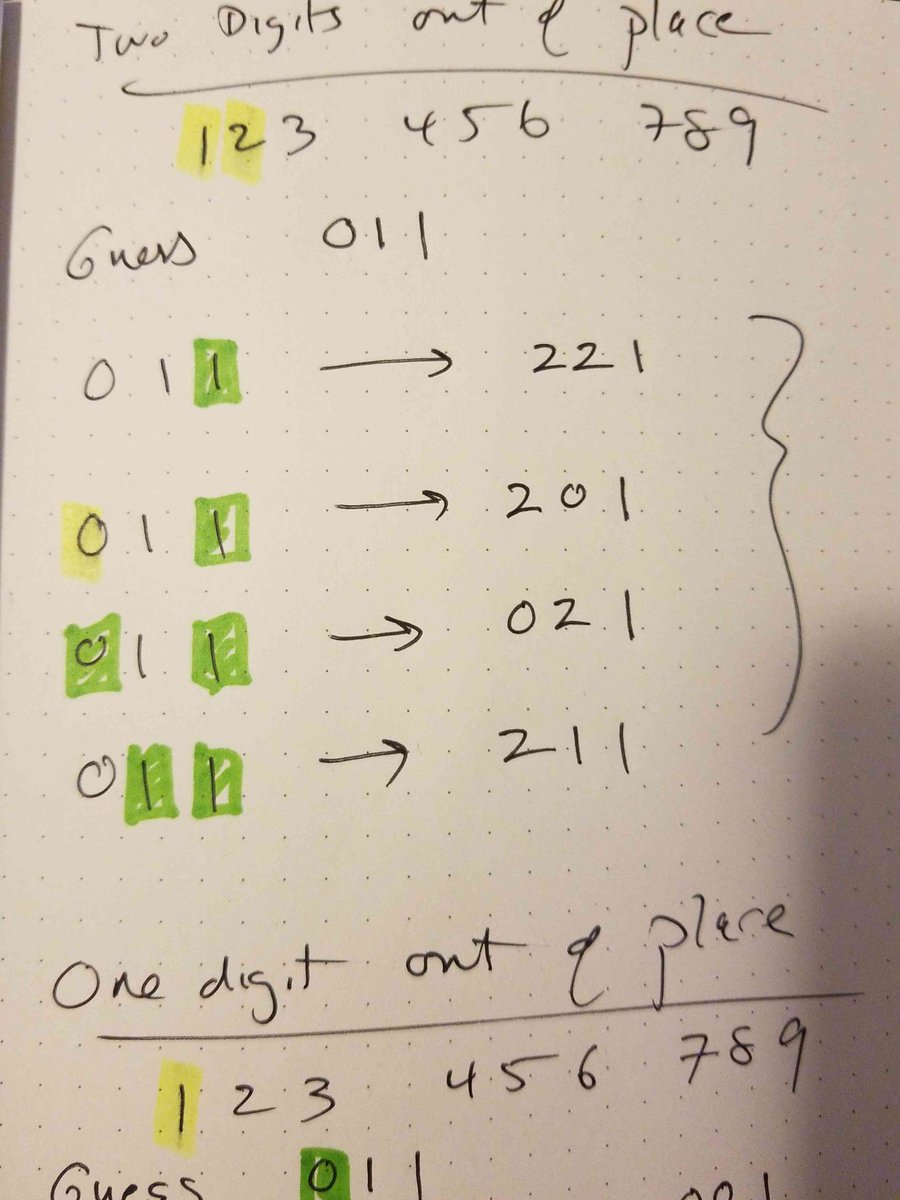 Two Digits out of place
123 456 789
Guess 011
011 → 221
011 → 201
011 → 021
011 → 211
One digit out of place
123 456 789
Guess 011